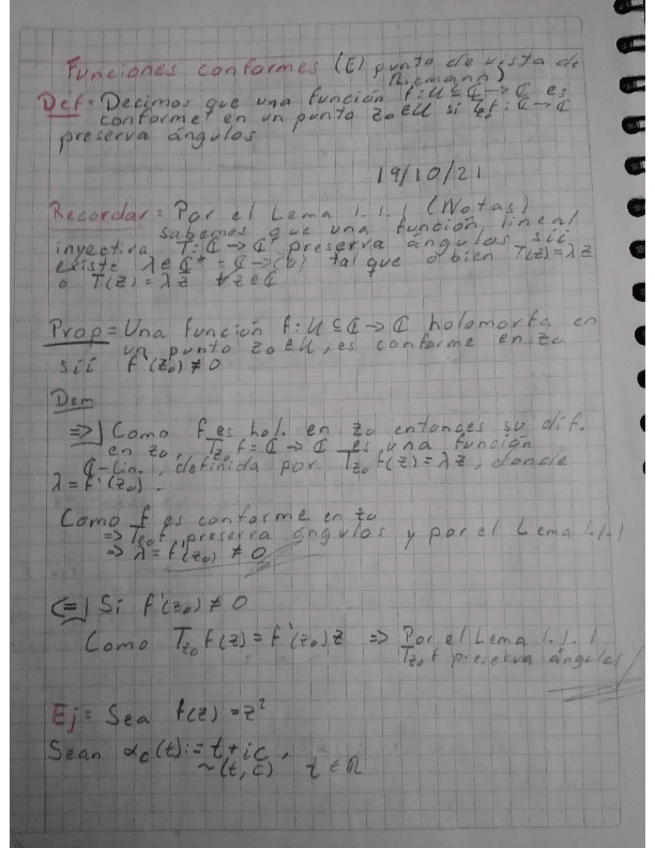 Funciones conformes (El punto de vista de
Riemann)
Def= Decimos que una función f:U⊆ℂ→ℂ es
conforme en un punto z₀∈U si T_{z₀}f:ℂ→ℂ
preserva ángulos
19/10/21
Recordar= Por el Lema 1.1.1 (Notas)
sabemos que una función lineal
inyectiva T:ℂ→ℂ preserva ángulos sii
existe λ∈ℂ* = ℂ-{0} tal que o bien T(z)=λz
o T(z)=λz̄ ∀z∈ℂ
Prop= Una función f:U⊆ℂ→ℂ holomorfa en
un punto z₀∈U, es conforme en z₀
sii f'(z₀)≠0
Dem
⇒] Como f es hol. en z₀ entonces su dif.
en z₀, T_{z₀}f=ℂ→ℂ es una función
ℂ-Lin., definida por T_{z₀}f(z)=λz, donde
λ=f'(z₀).
Como f es conforme en z₀
⇒ T_{z₀}f preserva ángulos y por el Lema 1.1.1
⇒ λ=f'(z₀)≠0
⇐] Si f'(z₀)≠0
Como T_{z₀}f(z)=f'(z₀)z ⇒ Por el Lema 1.1.1
T_{z₀}f preserva ángulos
Ej= Sea f(z)=z²
Sean α_c(t):=t+ic,
~(t,c) t∈ℝ